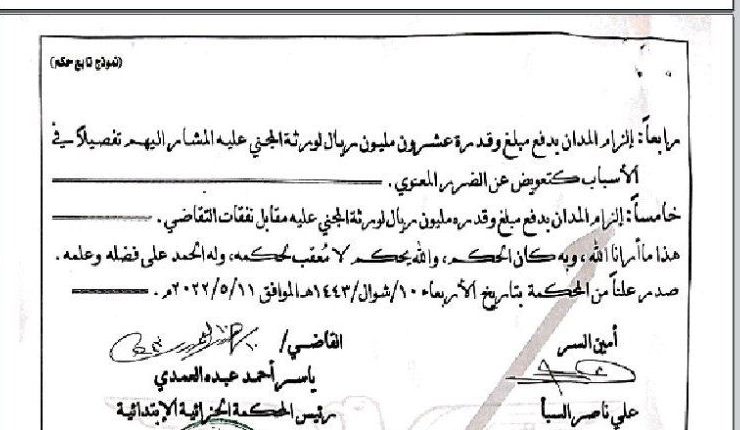 (نموذج تابع حكم)
رابعاً: إلزام المدان بدفع مبلغ وقدرة عشرون مليون ريال لورثة المجني عليه المشار اليهم تفصيلاً في
الأسباب كتعويض عن الضرر المعنوي .
خامساً: إلزام المدان بدفع مبلغ وقدره مليون ريال لورثة المجني عليه مقابل نفقات التقاضي .
هذا ما أرانا الله ، وبه كان الحكم ، والله يحكم لا مُعقب لحكمه ، وله الحمد على فضله وعلمه .
صدر علناً من المحكمة بتاريخ الأربعاء ١٠/شوال/١٤٤٣هـ الموافق ٢٠٢٢/٥/١١م .
القاضي/
أمين السر
ياسر أحمد عبده العمدي
علي ناصر السبأ
رئيس المحكمة الجزائية الإبتدائية